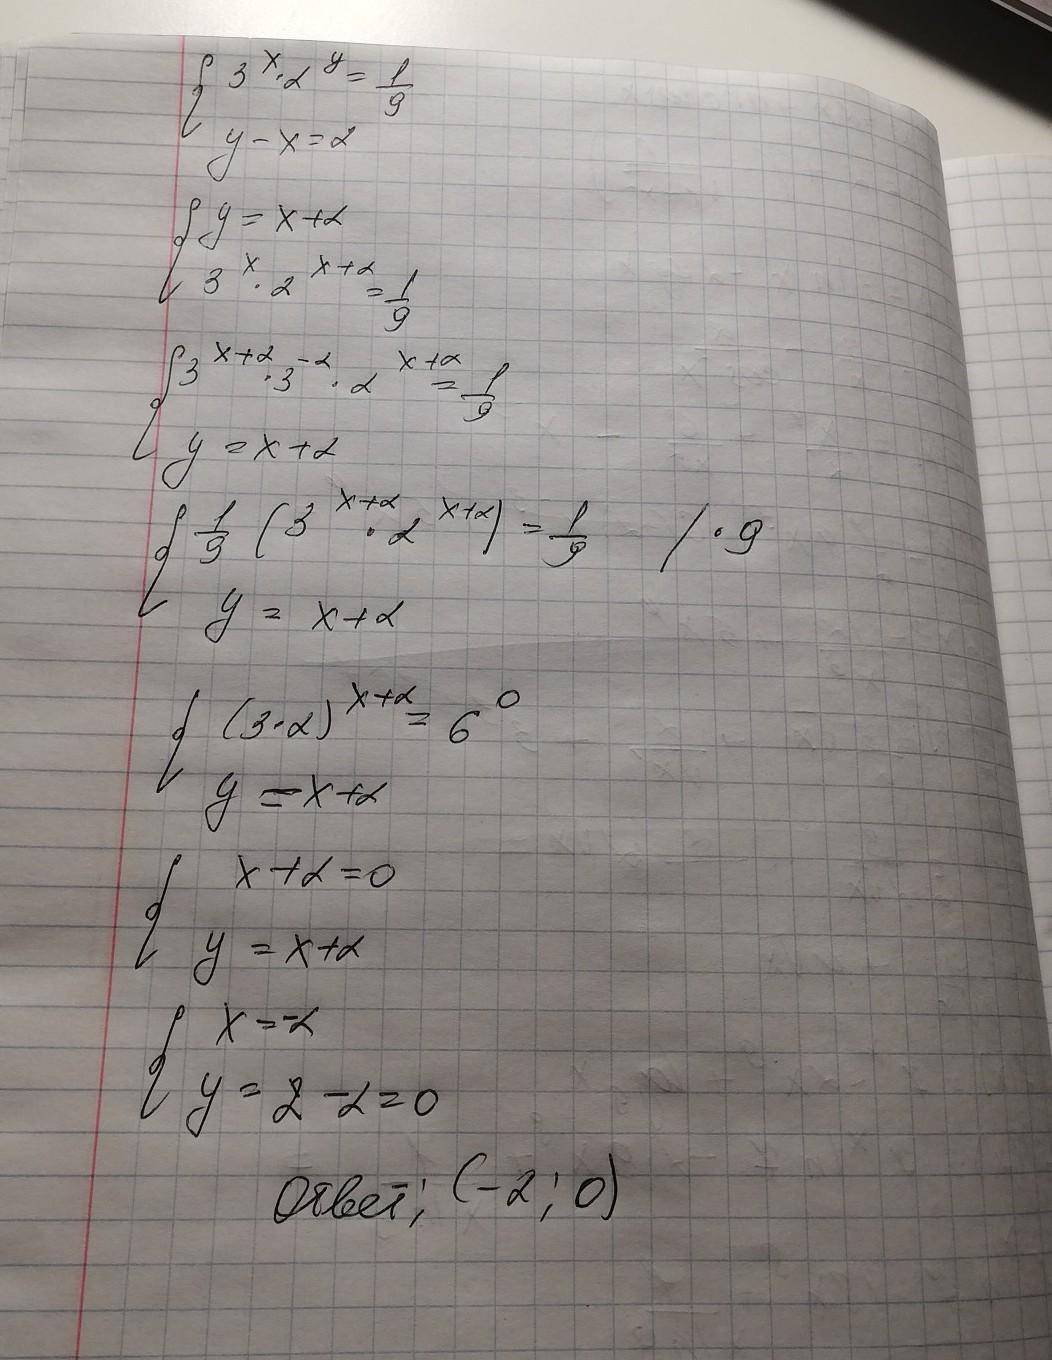 { 3^x · 2^y = 1/9
y - x = 2
{ y = x + 2
3^x · 2^(x+2) = 1/9
{ 3^(x+2) · 3^(-2) · 2^(x+2) = 1/9
y = x + 2
{ 1/9 (3^(x+2) · 2^(x+2)) = 1/9 / · 9
y = x + 2
{ (3·2)^(x+2) = 6^0
y = x + 2
{ x + 2 = 0
y = x + 2
{ x = -2
y = 2 - 2 = 0
Ответ; (-2; 0)